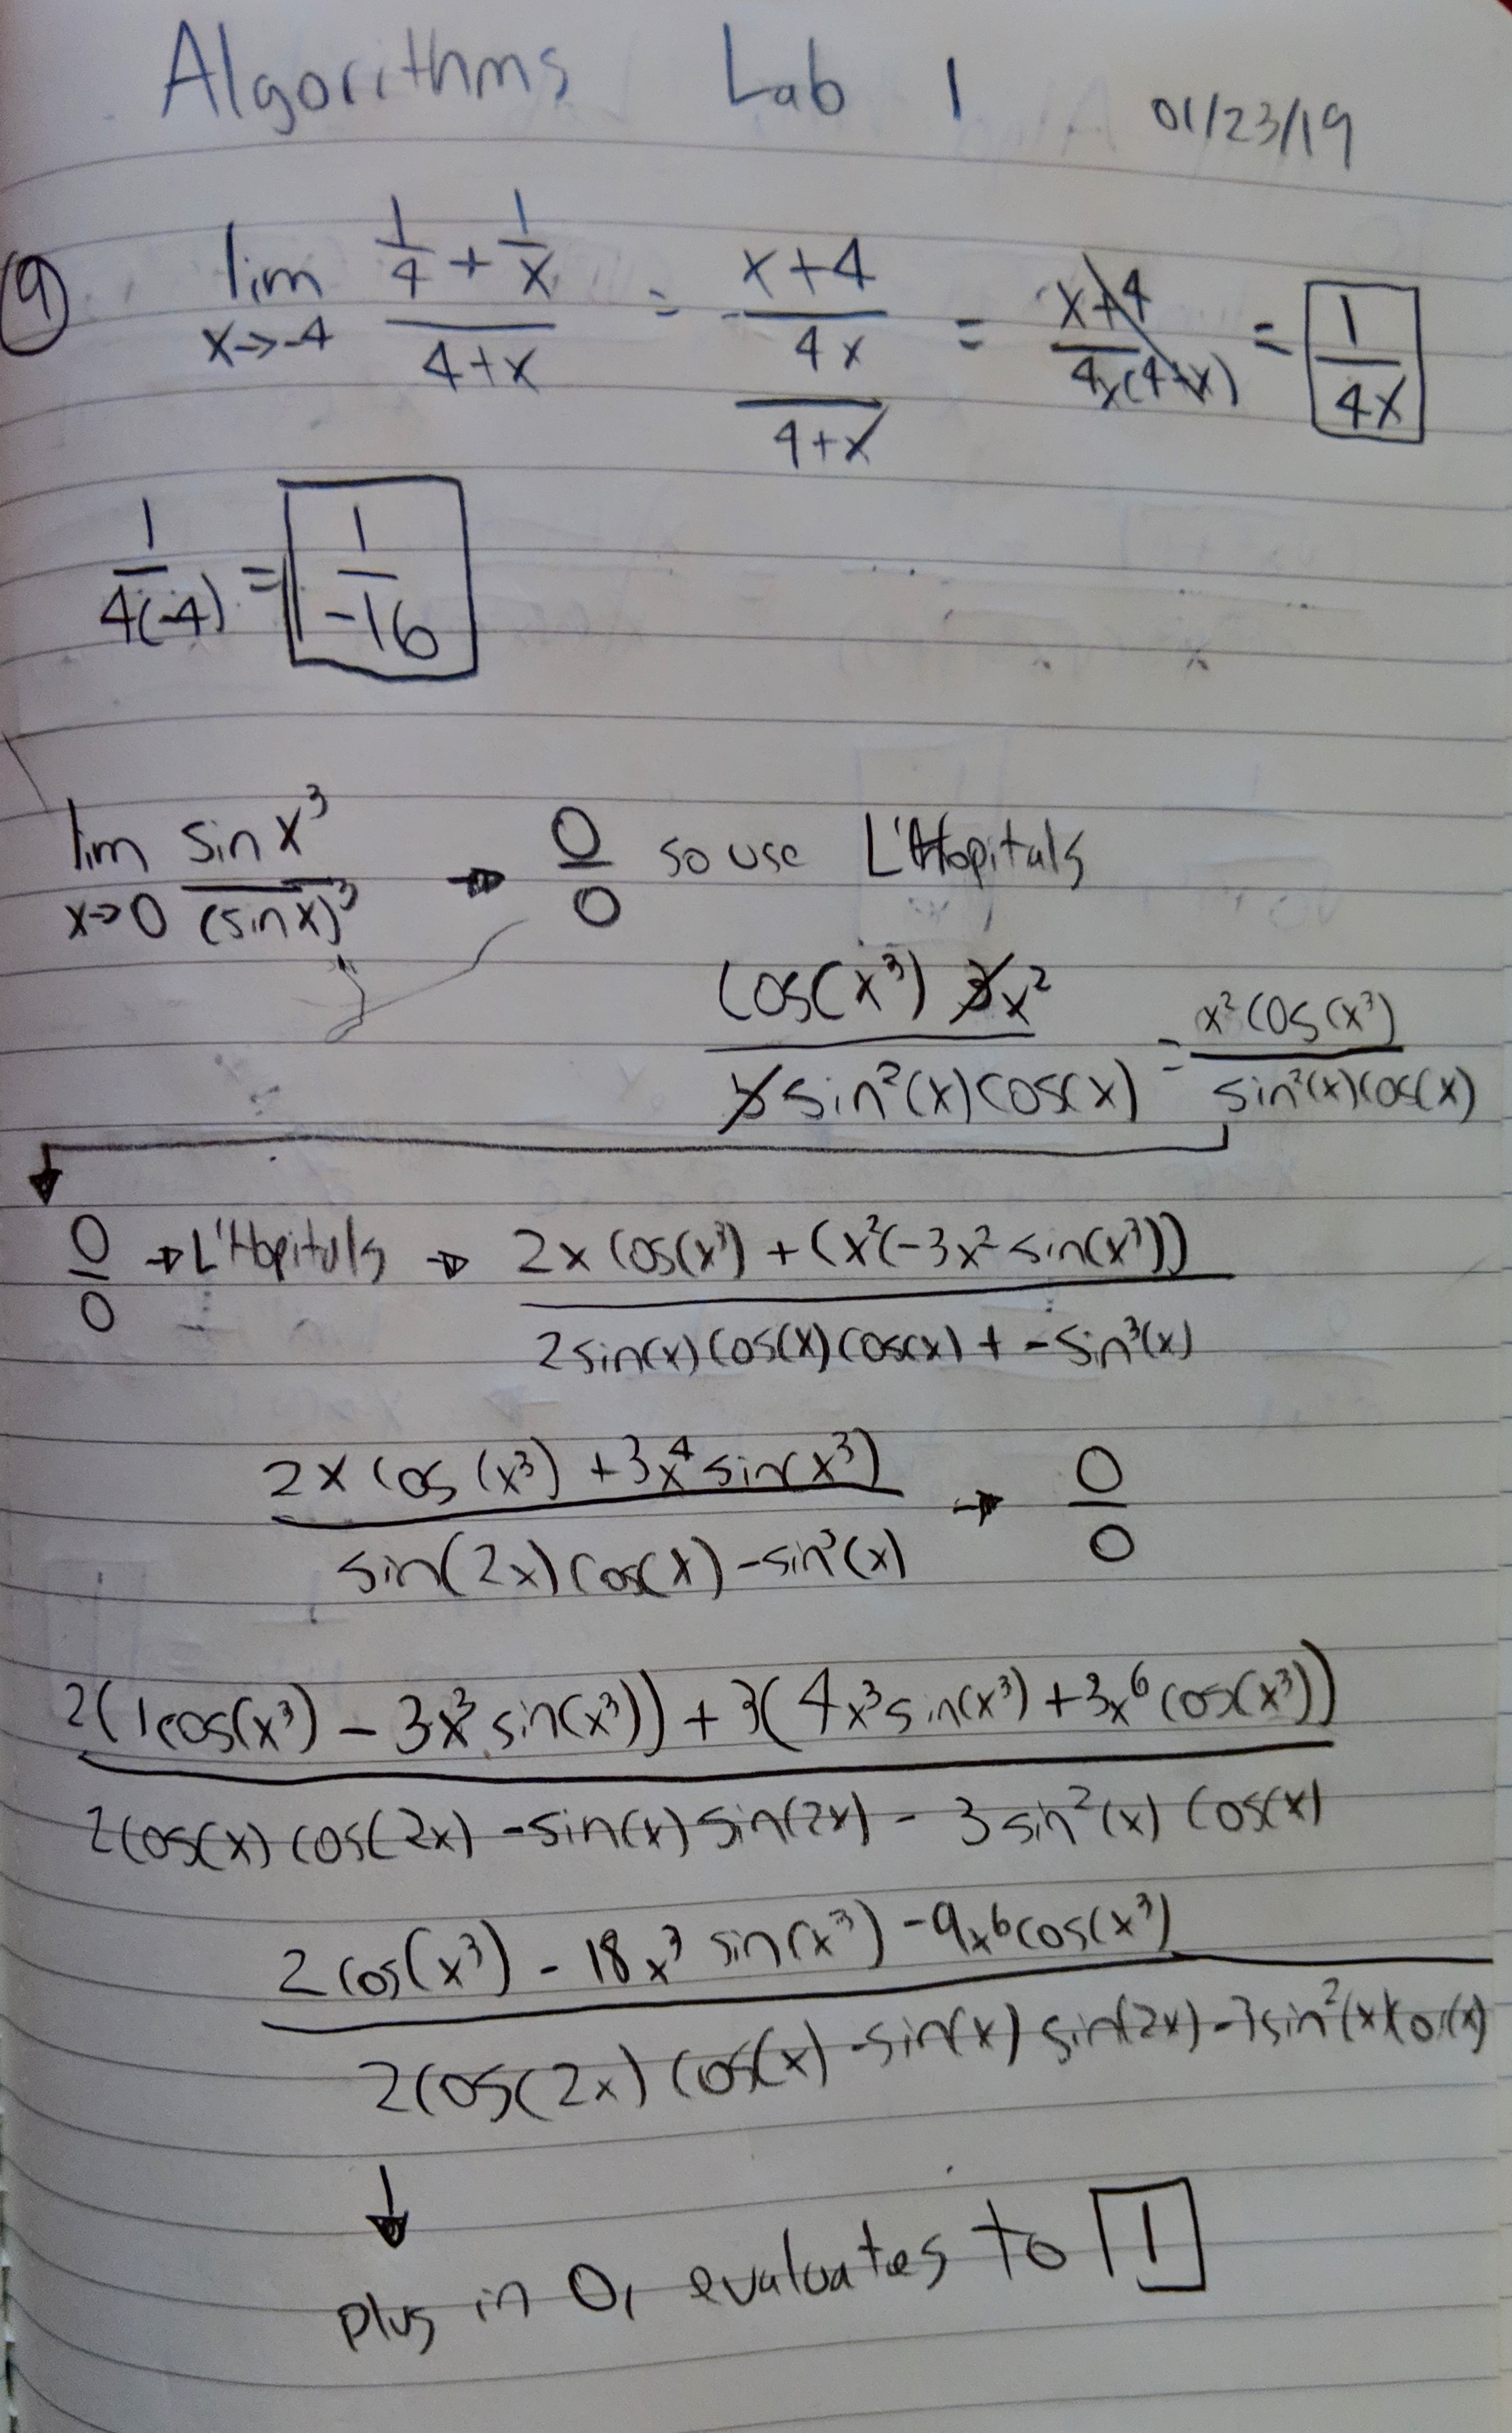 Algorithms Lab 1 01/23/19
9 lim x→-4 (1/4 + 1/x)/(4+x) = ((x+4)/(4x))/(4+x) = (x+4)/(4x(4+x)) = 1/(4x)
1/(4(-4)) = 1/-16
lim x→0 sin x³/(sin x)³ → 0/0 so use L'Hopitals
(cos(x³) 3x²)/(3 sin²(x) cos(x)) = (x² cos(x³))/(sin²(x) cos(x))
0/0 → L'Hopitals → (2x cos(x³) + (x²(-3x² sin(x³)))/(2 sin(x) cos(x) cos(x) + - sin³(x))
(2x cos(x³) + 3x⁴ sin(x³))/(sin(2x) cos(x) - sin³(x)) → 0/0
(2(1cos(x³) - 3x³ sin(x³)) + 3(4x³ sin(x³) + 3x⁶ cos(x³)))/(2cos(x) cos(2x) - sin(x) sin(2x) - 3 sin²(x) cos(x))
(2 cos(x³) - 18x³ sin(x³) - 9x⁶ cos(x³))/(2cos(2x) cos(x) - sin(x) sin(2x) - 3sin²(x) cos(x))
↓
plug in 0, evaluates to 1